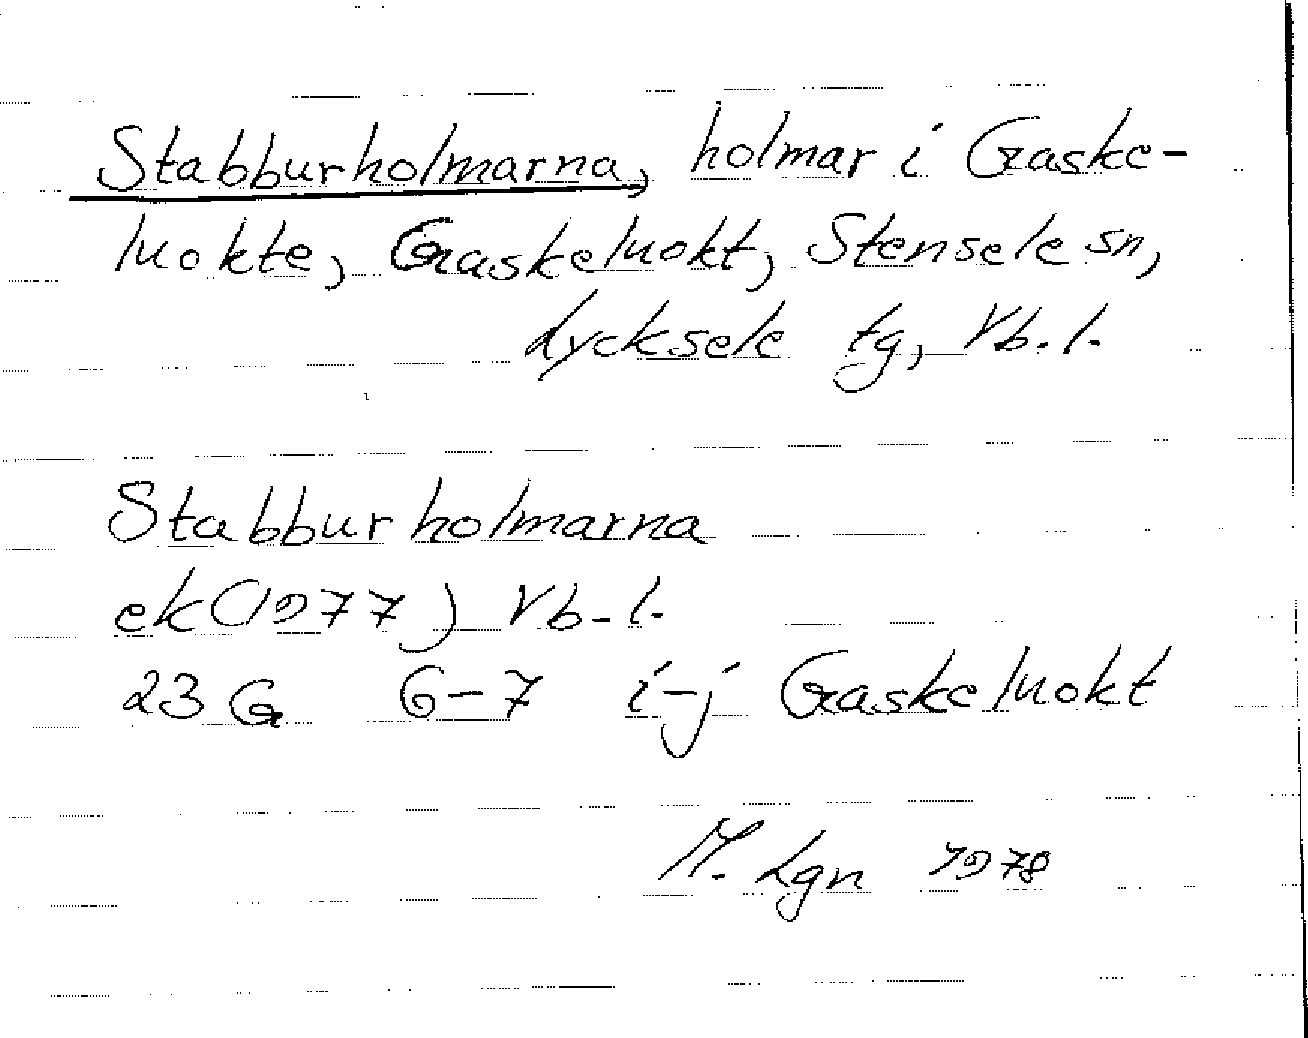 Stabburholmarna, holmar i Gaske-
luokte, Gaskeluokt, Stensele sn,
Lycksele tg, Vb. l.
Stabburholmarna
ek (1977) Vb. l.
23 G 6-7 i-j Gaskeluokt
M. Lgn 1978